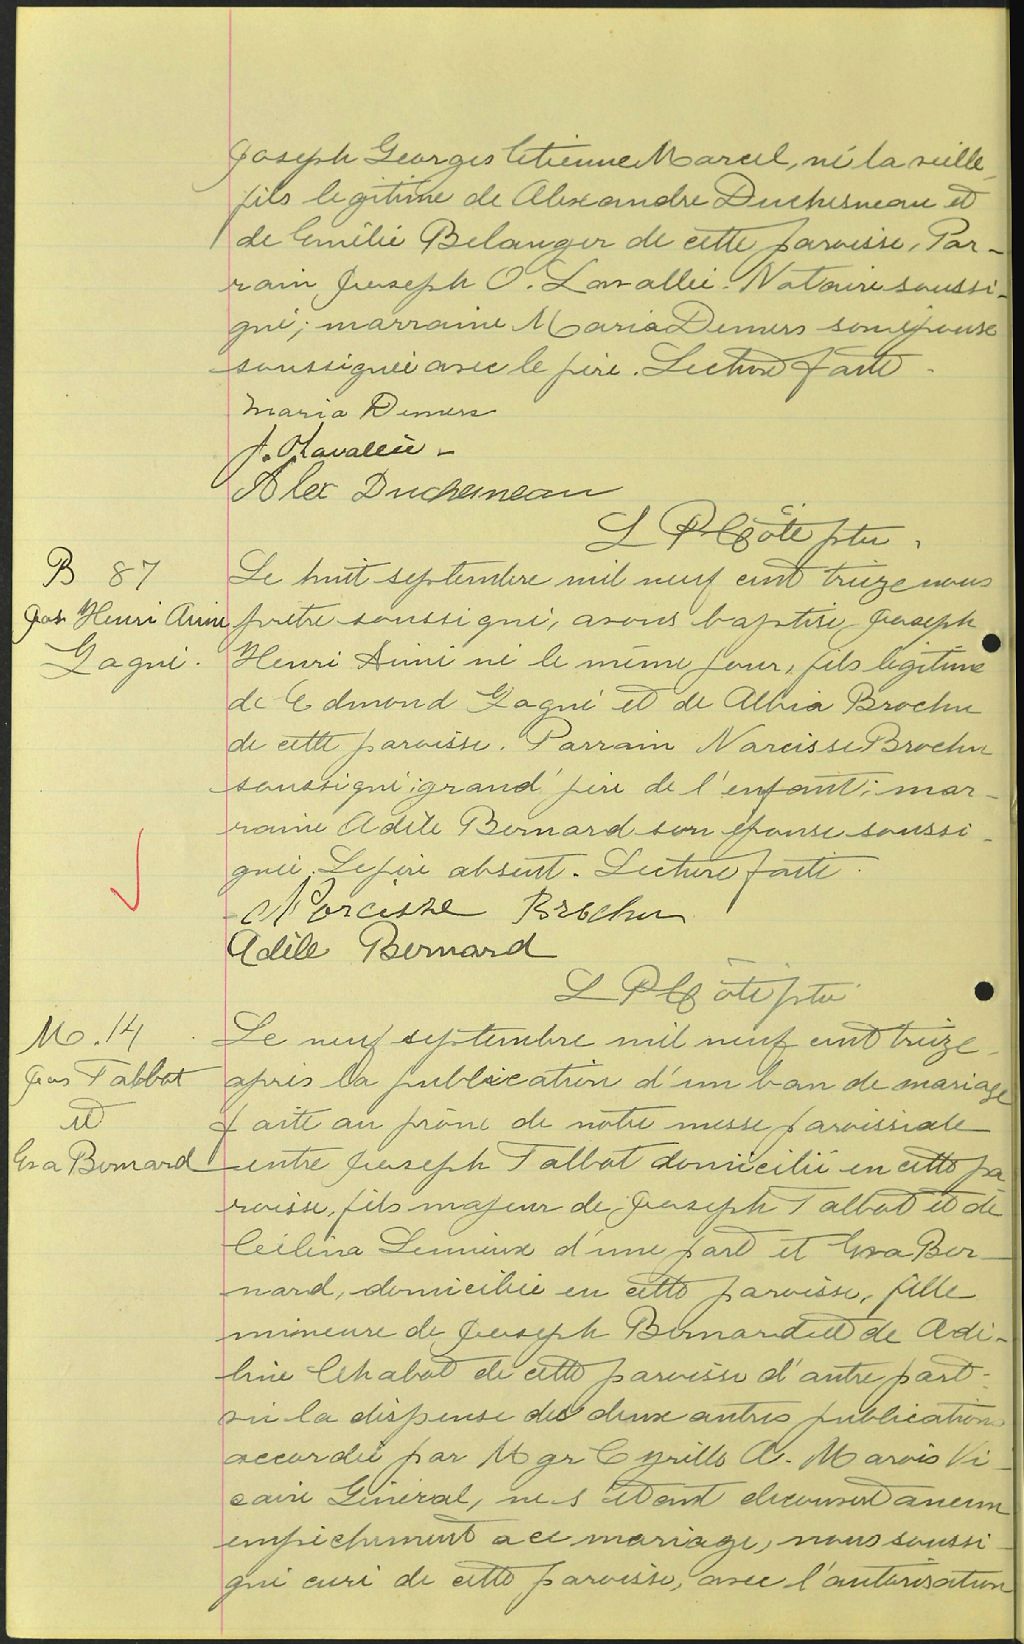 Joseph Georges Etienne Marcel, né la veille,
fils legitime de Alexandre Duchesneau et
de Emélie Belanger de cette paroisse, Par-
rain Joseph O. Lavallée. Notaire soussi-
gné; marraine Maria Demers son épouse
soussignée avec le père. Lecture faite.
Maria Demers
J. O Lavallée -
Alex Duchesneau
L P Côté ptre.
B 87
Jos Henri Aimé
Gagné.
Le huit septembre mil neuf cent treize nous
prêtre soussigné, avons baptisé Joseph
Henri Aimé né le même jour, fils legitime
de Edmond Gagné et de Albia Brochu
de cette paroisse. Parrain Narcisse Brochu
soussigné; grand'père de l'enfant; mar-
raine Adèle Bernard son épouse soussi-
gnée. Le père absent. Lecture faite.
Narcisse Brochu
Adèle Bernard
L P Côté ptre
M. 14
Jos Talbot
et
Eva Bernard
Le neuf septembre mil neuf cent treize,
après la publication d'un ban de mariage
faite au prône de notre messe paroissiale
entre Joseph Talbot domicilié en cette pa
roisse, fils majeur de Joseph Talbot et de
Célina Lemieux d'une part et Eva Ber-
nard, domiciliée en cette paroisse, fille
mineure de Joseph Bernard et de Adé-
line Chabot de cette paroisse d'autre part;
vu la dispense des deux autres publications
accordée par Mgr Cyrille A. Marois Vi-
caire Général, ne s'étant decouvert aucun
empêchement a ce mariage, nous soussi-
gné curé de cette paroisse, avec l'autorisation